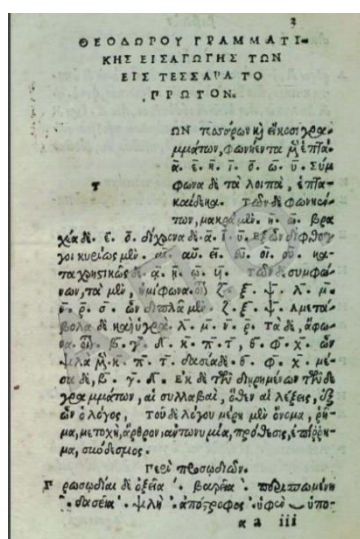 3
ΘΕΟΔΩΡΟΥ ΓΡΑΜΜΑΤΙ-
ΚΗΣ ΕΙΣΑΓΩΓΗΣ ΤΩΝ
ΕΙΣ ΤΕΣΣΑΡΑ ΤΟ
ΠΡΩΤΟΝ.
ΩΝ τεσσάρων καὶ εἴκοσι γρα-
μμάτων, φωνήεντα μὲν ἑπτά·
α. ε. η. ι. ο. ω. υ. Σύμ
φωνα δὲ τὰ λοιπὰ, ἑπτα-
τ
καίδεκα. τῶν δὲ φωνηέν-
των, μακρὰ μὲν. η. ω. βρα
χέα δὲ. ε. ο. δίχρονα δὲ. α. ι. υ. ἐξ ὧν δίφθογ
γοι κυρίως μὲν. αι. αυ. ει. ευ. οι. ου. κα-
τα χρηστικῶς δὲ. ᾳ. ῃ. ῳ. τῶν δὲ συμφώ-
νων, τὰ μὲν, ἡμίφωνα. ζ. ξ. ψ. λ. μ.
ν. ρ. σ. ὧν διπλᾶ μὲν. ζ. ξ. ψ. ἀμετά-
βολα δὲ καὶ ὑγρὰ. λ. μ. ν. ρ. τὰ δὲ, ἄφω-
να. β. γ. δ. κ. π. τ. θ. φ. χ. ὧν
ψιλὰ μὲν. κ. π. τ. δασέα δὲ. θ. φ. χ. μέ-
σα δὲ, β. γ. δ. ἐκ δὲ τῶν διῃρημένων τῶνδε
γραμμάτων, αἱ συλλαβαὶ, ὅθεν αἱ λέξεις, ἐξ
ὧν ὁ λόγος, τοῦ δὲ λόγου μέρη μὲν ὄνομα, ῥῆ-
μα, μετοχὴ, ἄρθρον, ἀντωνυμία, πρόθεσις, ἐπίρρη-
μα, σύνδεσμος.
Περὶ προσῳδιῶν.
Προσῳδίαι δὲ ὀξεῖα. βαρεῖα. περισπωμένη
δασεῖα. ψιλὴ. ἀπόστροφος. ὑφὲν. ὑπο-
a a iii